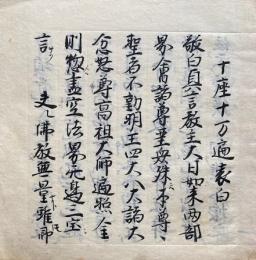 十座十万遍表白
敬白真言教主大日如来両部
界会諸尊聖衆殊本尊
聖者不動明王四大八大諸大
忿怒尊高祖大師遍照金
剛惣尽空法界无辺三宝
言 夫佛教無量雖